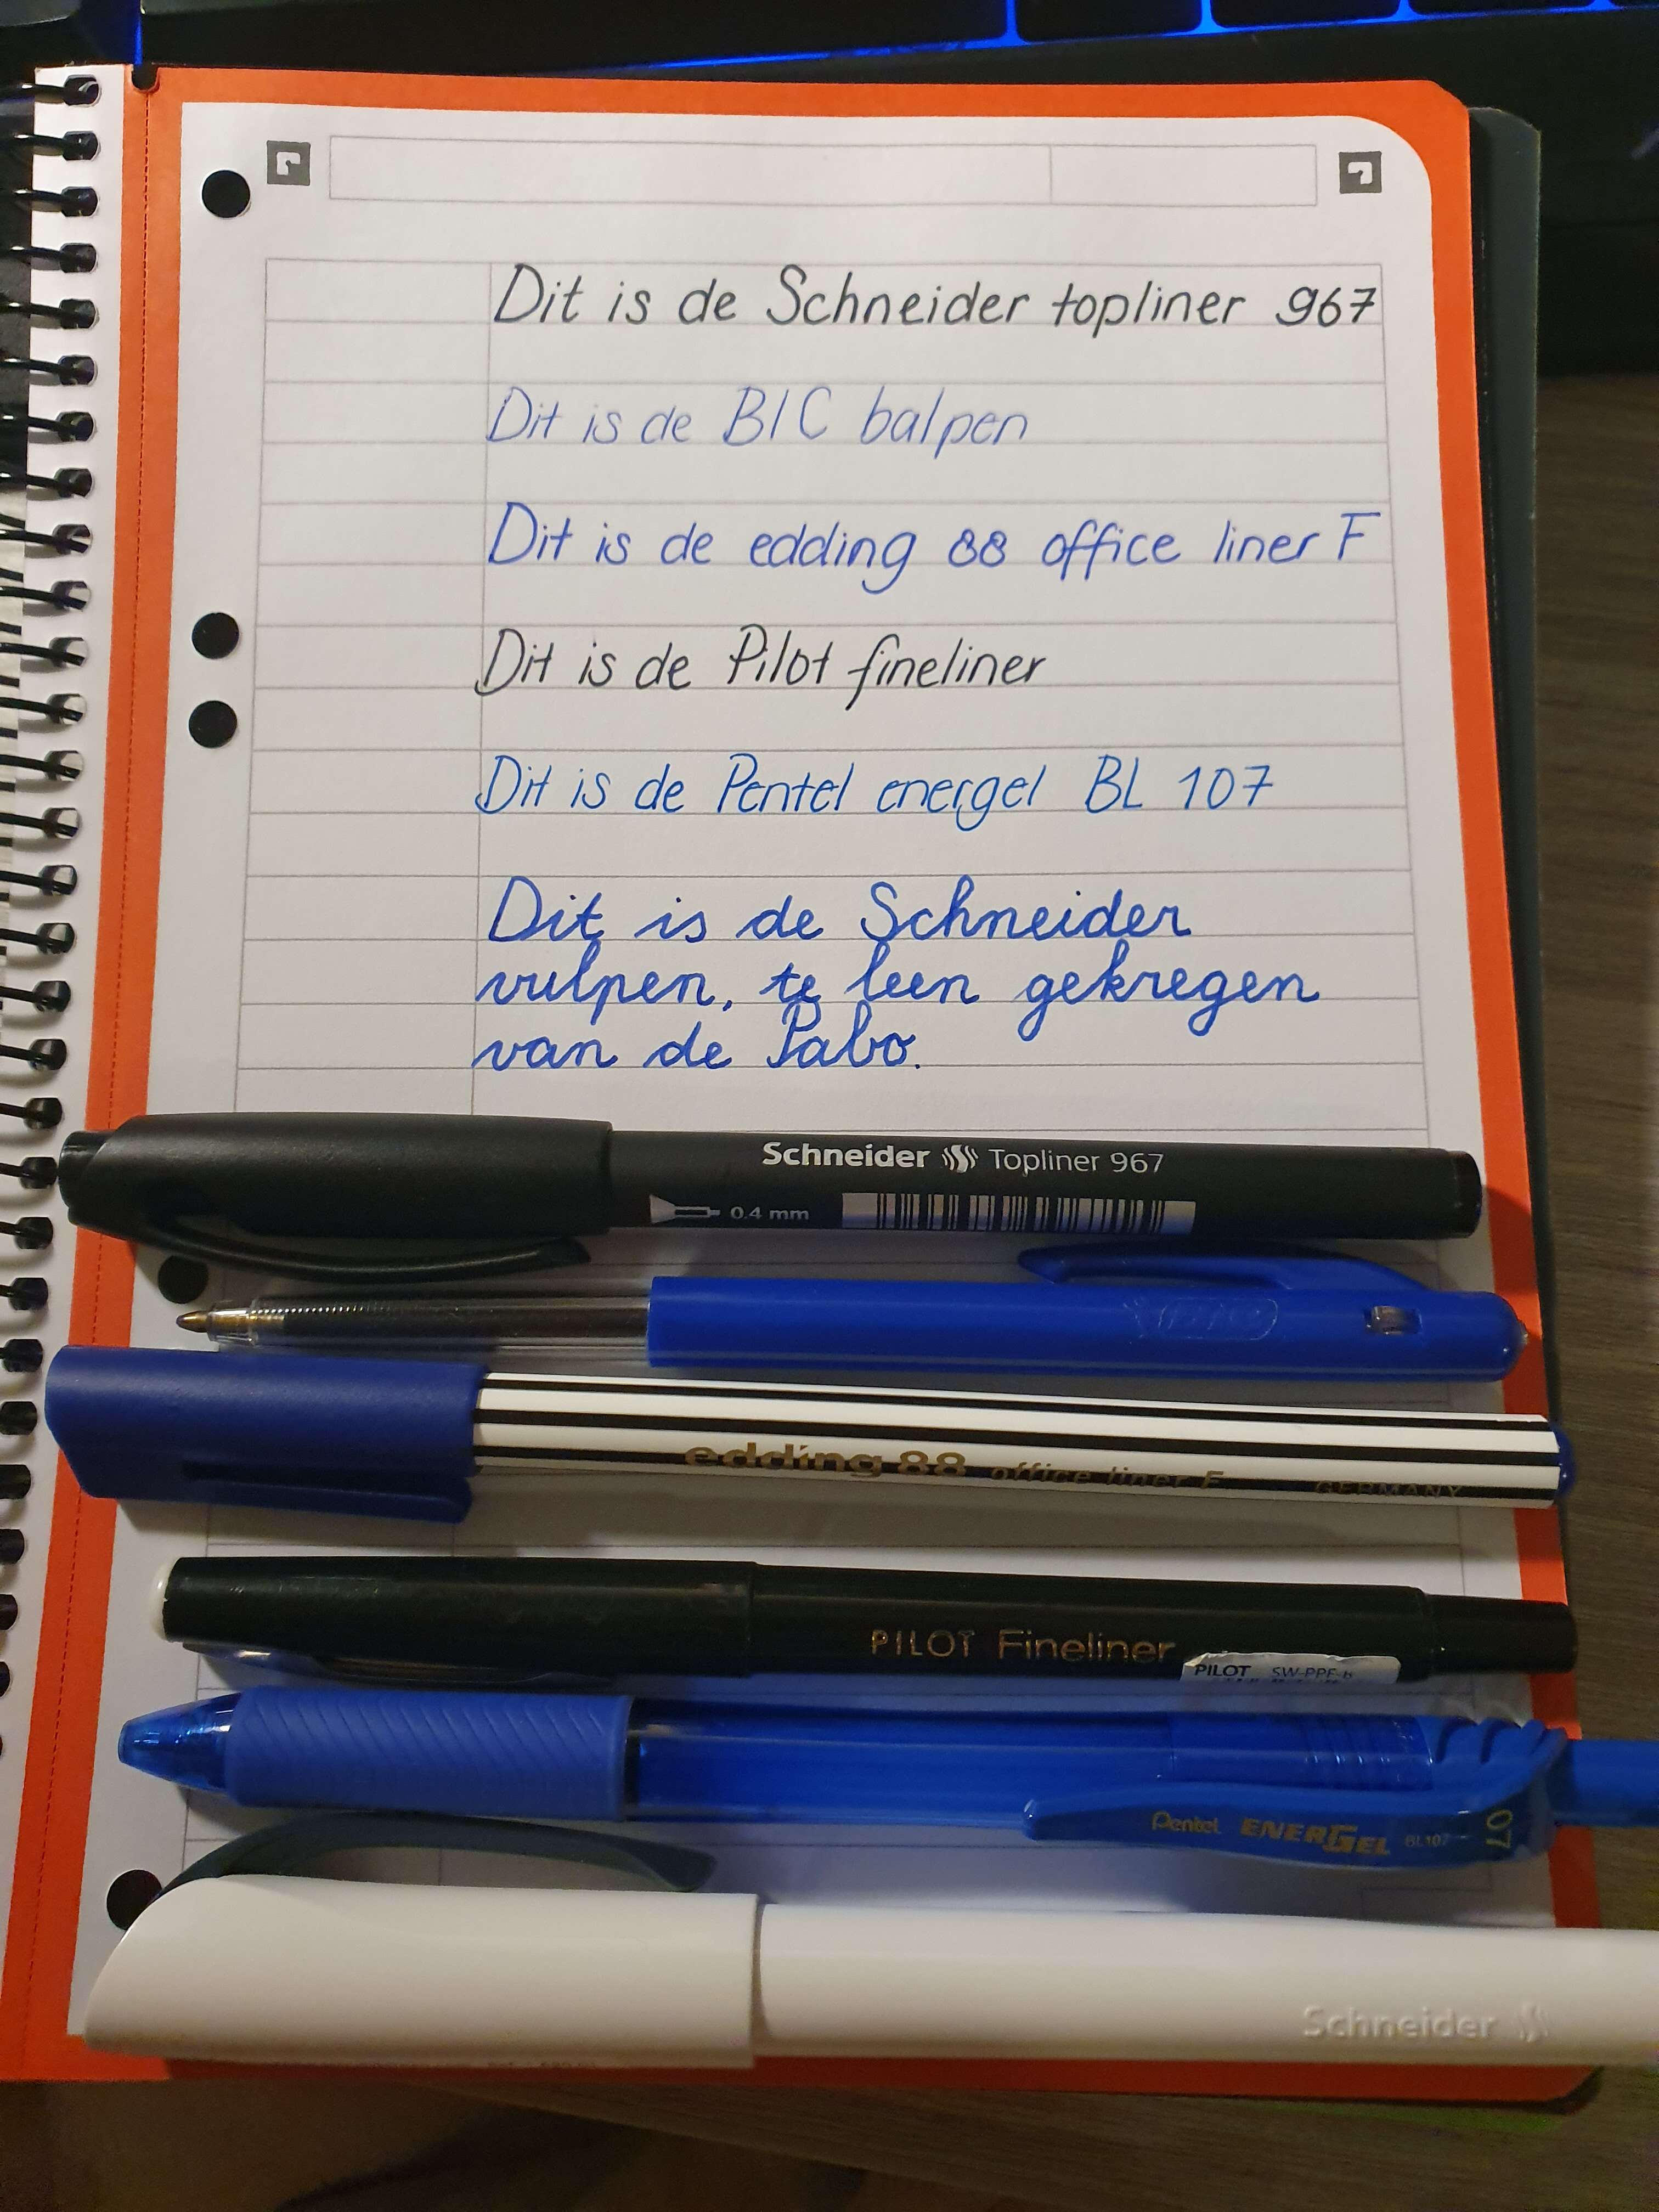 Dit is de Schneider topliner 967
Dit is de BIC balpen
Dit is de edding 88 office liner F
Dit is de Pilot fineliner
Dit is de Pentel energel BL 107
Dit is de Schneider
vulpen, te leen gekregen
van de Pabo.
Schneider Topliner 967
0.4 mm
BIC
edding 88 office liner F GERMANY
PILOT Fineliner
PILOT SW-PPF-B
Pentel ENERGEL BL107 07
Schneider